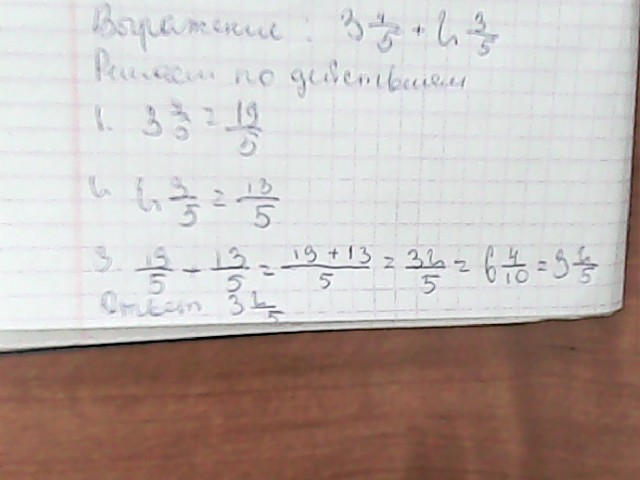 Выражение: 3 4/5 + 2 3/5
Решаем по действиям
1. 3 4/5 = 19/5
2. 2 3/5 = 13/5
3. 19/5 - 13/5 = 19+13/5 = 32/5 = 6 4/10 = 3 2/5
Ответ 3 2/5